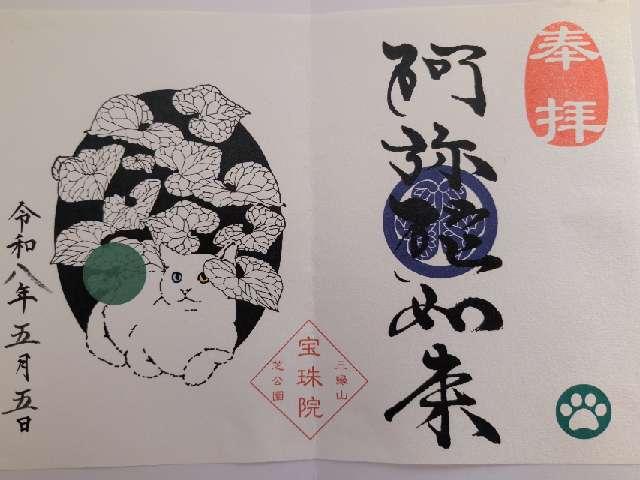 奉拝
阿弥陀如来
三縁山
宝珠院
芝公園
令和八年五月五日